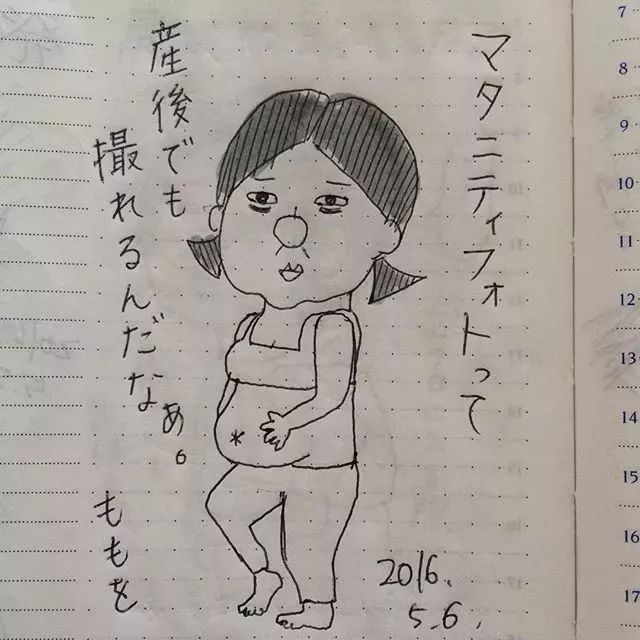 マタニティフォトって
産後でも
撮れるんだなぁ。
ももを
2016.
5.6.
7
8
9
10
11
12
13
14
15
16
17